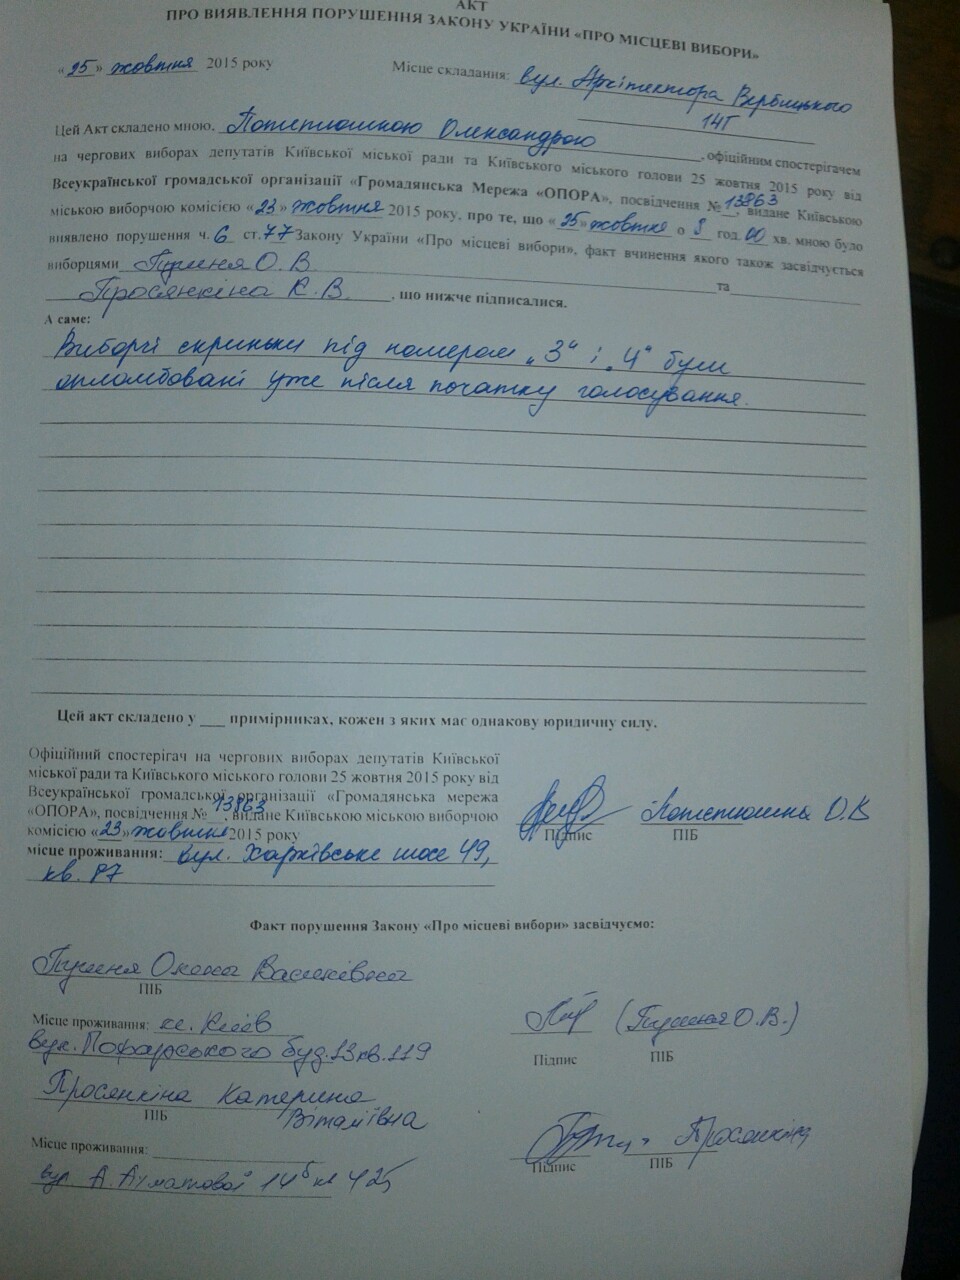 АКТ
ПРО ВИЯВЛЕННЯ ПОРУШЕННЯ ЗАКОНУ УКРАЇНИ «ПРО МІСЦЕВІ ВИБОРИ»
«25» жовтня 2015 року Місце складання: вул. Архітектора Вербицького
14Г
Цей Акт складено мною, Потетюшною Олександрою, офіційним спостерігачем
на чергових виборах депутатів Київської міської ради та Київського міського голови 25 жовтня 2015 року від
Всеукраїнської громадської організації «Громадянська Мережа «ОПОРА», посвідчення № 13863, видане Київською
міською виборчою комісією «23» жовтня 2015 року, про те, що «25» жовтня о 8 год. 00 хв. мною було
виявлено порушення ч. 6 ст. 77 Закону України «Про місцеві вибори», факт вчинення якого також засвідчується
виборцями О.В. та
Просянкіна К.В., що нижче підписалися.
А саме:
Виборчі скриньки під номером „3“ і „4“ були
опломбовані уже після початку голосування.
Цей акт складено у ___ примірниках, кожен з яких має однакову юридичну силу.
Офіційний спостерігач на чергових виборах депутатів Київської
міської ради та Київського міського голови 25 жовтня 2015 року від
Всеукраїнської громадської організації «Громадянська мережа
«ОПОРА», посвідчення № 13863, видане Київською міською виборчою
комісією «23» жовтня 2015 року
Потетюшна О.В
Підпис ПІБ
місце проживання: вул. Харківське шосе 49,
кв. 87
Факт порушення Закону «Про місцеві вибори» засвідчуємо:
Оксана Василівна
ПІБ
Місце проживання: м. Київ
вул. Пожарського буд. 13 кв. 119
(О.В.)
Підпис ПІБ
Просянкіна Катерина
ПІБ Віталіївна
Місце проживання:
вул А. Ахматової 14б кв 425
Просянкіна
Підпис ПІБ